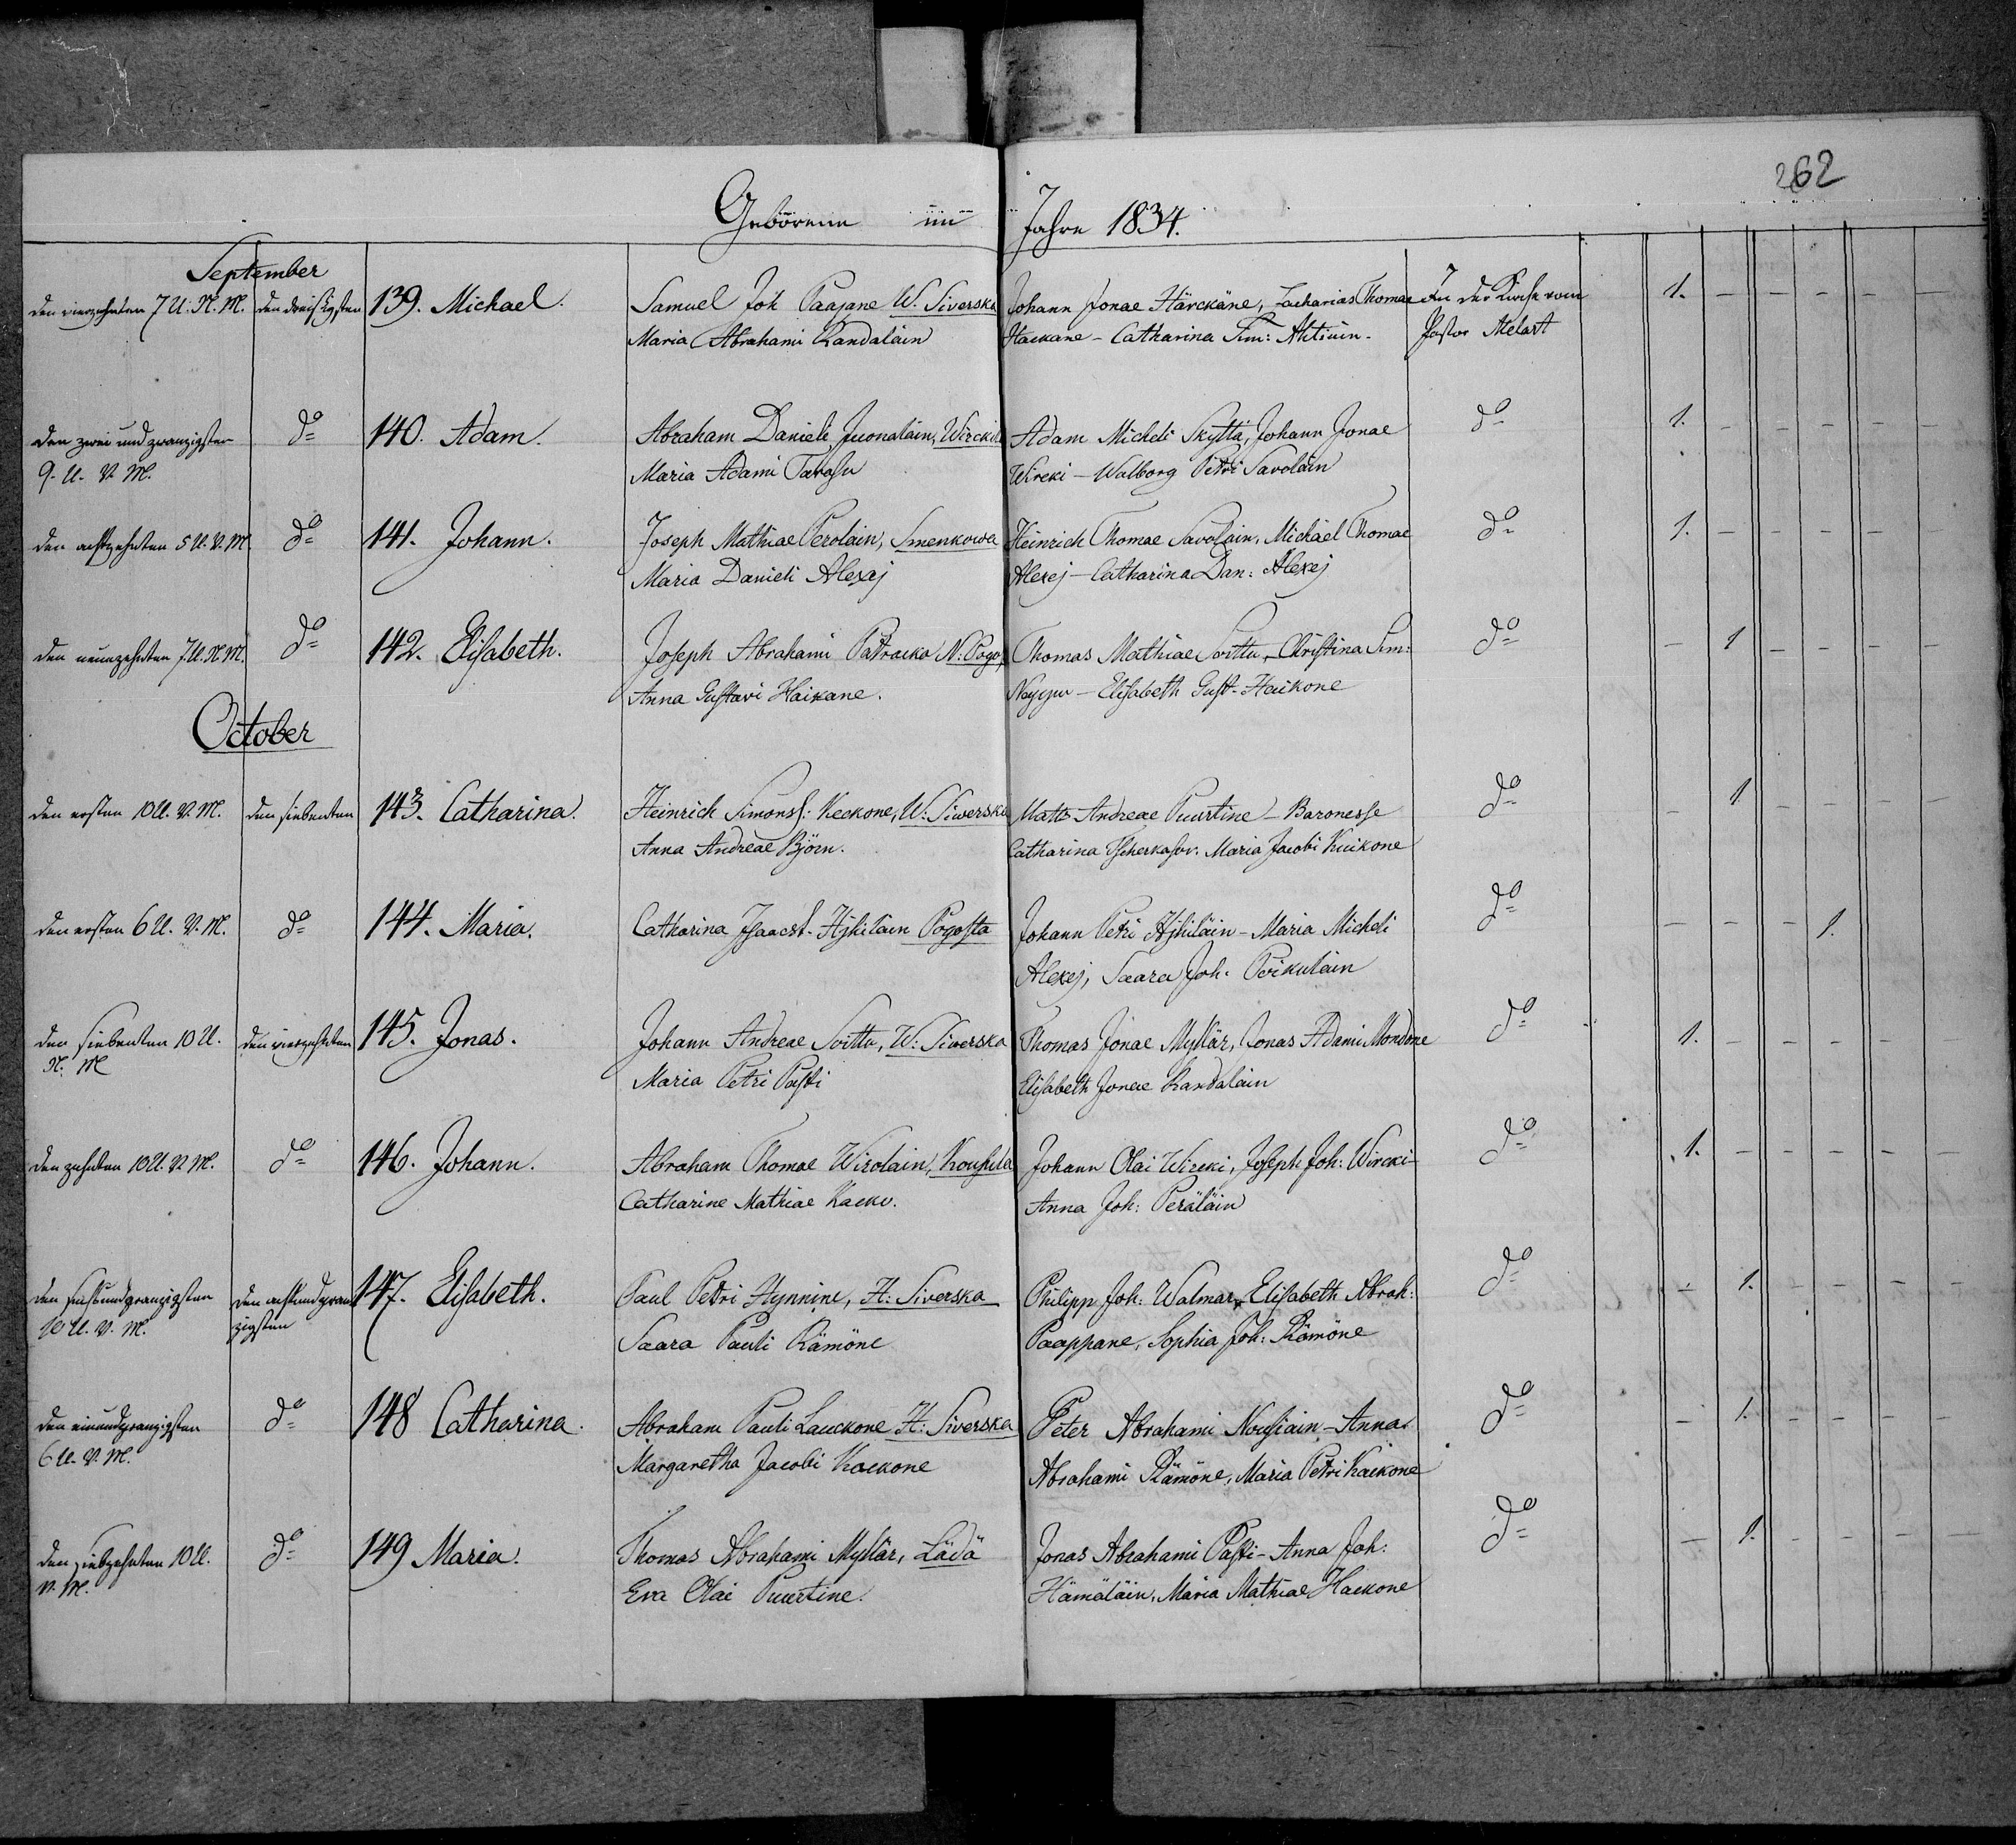 262
Geborene im Jahre 1834.
September
den vierzehnten 7 U. N. M. den dreißigsten 139. Michael. Samuel Joh Paajane W. Siverska Johann Jonae Härckäne, Zacharias Thomae In der Kirche vom 1. – – – – –
Maria Abrahami Kandalain Haekane – Catharina Sim: Ahtiain. Pastor Melart
den zwei und zwanzigsten do 140. Adam. Abraham Danieli Juonalain, Wirckilä Adam Micheli Skyttä, Johann Jonae do 1. – – – – –
9. U. V. M. Maria Adami Tavasu Wireki – Walborg Petri Savolain
den achtzehnten 5 U. V. M. do 141. Johann. Joseph Mathiae Perolain, Smenkowa Heinrich Thomae Savolain, Michael Thomae do 1. – – – – –
Maria Danieli Alexaj Alexej – Catharina Dan: Alexej
den neunzehnten 7 U. N. M. do 142. Elisabeth. Joseph Abrahami Pätracka N: Pogo, Thomas Mathiae Soittu, Christina Sim: do – 1 – – – –
Anna Gustavi Haikane. – Elisabeth Gust. Haikone
October
den ersten 10 U. V. M. den siebenten 143. Catharina. Heinrich Simonsf: Keckone, W: Siwerska Matts Andreae Puurtine – Baronesse do – 1 – – – –
Anna Andreae Björn. Catharina Tscherkasov. Maria Jacobi Kuikone
den ersten 6 U. V. M. do 144. Maria. Catharina Isaacsf. Hjhiläin Pogosta Johann Petri Hjhiläin – Maria Micheli do – – – 1.
Alexej, Saara Joh. Poikulain
den siebenten 10 U. den vierzehnten 145. Jonas. Johann Andreae Soittu, W: Siwerska Thomas Jonae Myllär, Jonas Adami Mondone do 1. – – – – –
N. M Maria Petri Pasti Elisabeth Jonae Kandalain
den zehnten 10 U. V. M. do 146. Johann. Abraham Thomae Wirolain, Kousula Johann Olai Wireki, Joseph Joh: Wircki – do 1. – – – – –
Catharine Mathiae Kaeko. Anna Joh: Peräläin
den sechsundzwanzigsten den achtundzwan 147. Elisabeth. Paul Petri Hynnine, H: Siverska Philipp Joh: Walmar, Elisabeth Abrah: do – 1. – – – –
10 U. V. M. zigsten Saara Pauli Rämöne Paappane, Sophia Joh: Rämöne
den einundzwanzigsten do 148 Catharina. Abraham Pauli Lauckone H: Siverska Peter Abrahami Nousiain – Anna do – 1. – – – –
6 U. V. M. Margaretha Jacobi Kaekone Abrahami Rämöne, Maria Petri Kaekone
den siebzehnten 10 U. do 149 Maria. Thomas Abrahami Myllär, Lädä Jonas Abrahami Pasti – Anna Joh: do – 1. – – – –
V. M. Eva Olai Puurtine. Hämäläin, Maria Mathiae Haekone